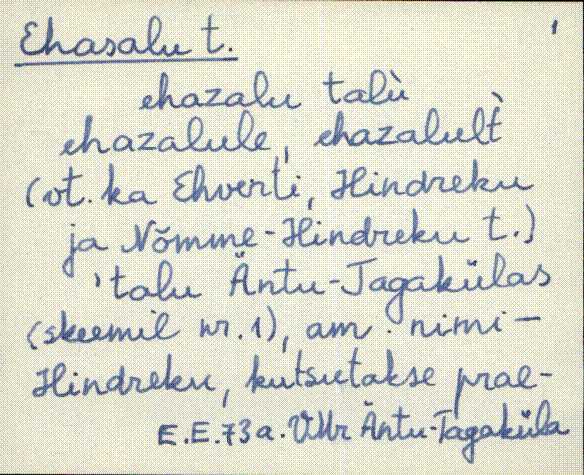 Ehasalu t. 1
ehazalu talù
ehazalule, ehazalult̀
(vt. ka Ehverti, Hindreku
ja Nõmme-Hindreku t.)
'talu Äntu-Tagakülas
(skeemil nr. 1), am. nimi -
Hindreku, kutsutakse prae-
E.E.73a. VMr Äntu-Tagaküla